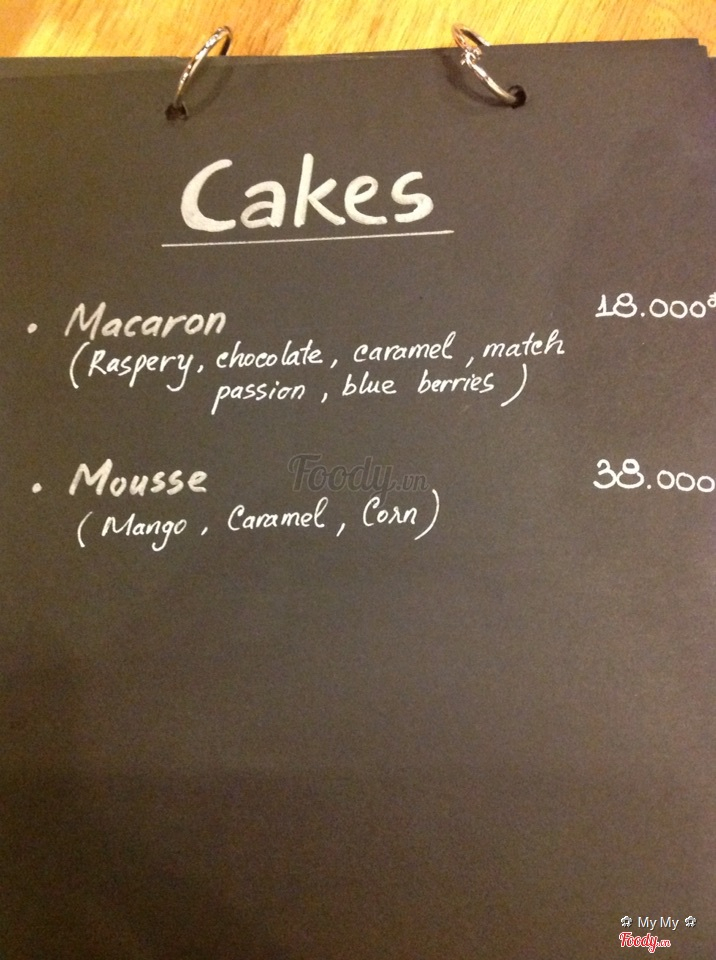 Cakes
• Macaron 18.000đ
(Raspery, chocolate, caramel, match
passion, blue berries)
Foody.vn
• Mousse 38.000
(Mango, Caramel, Corn)
My My
Foody.vn